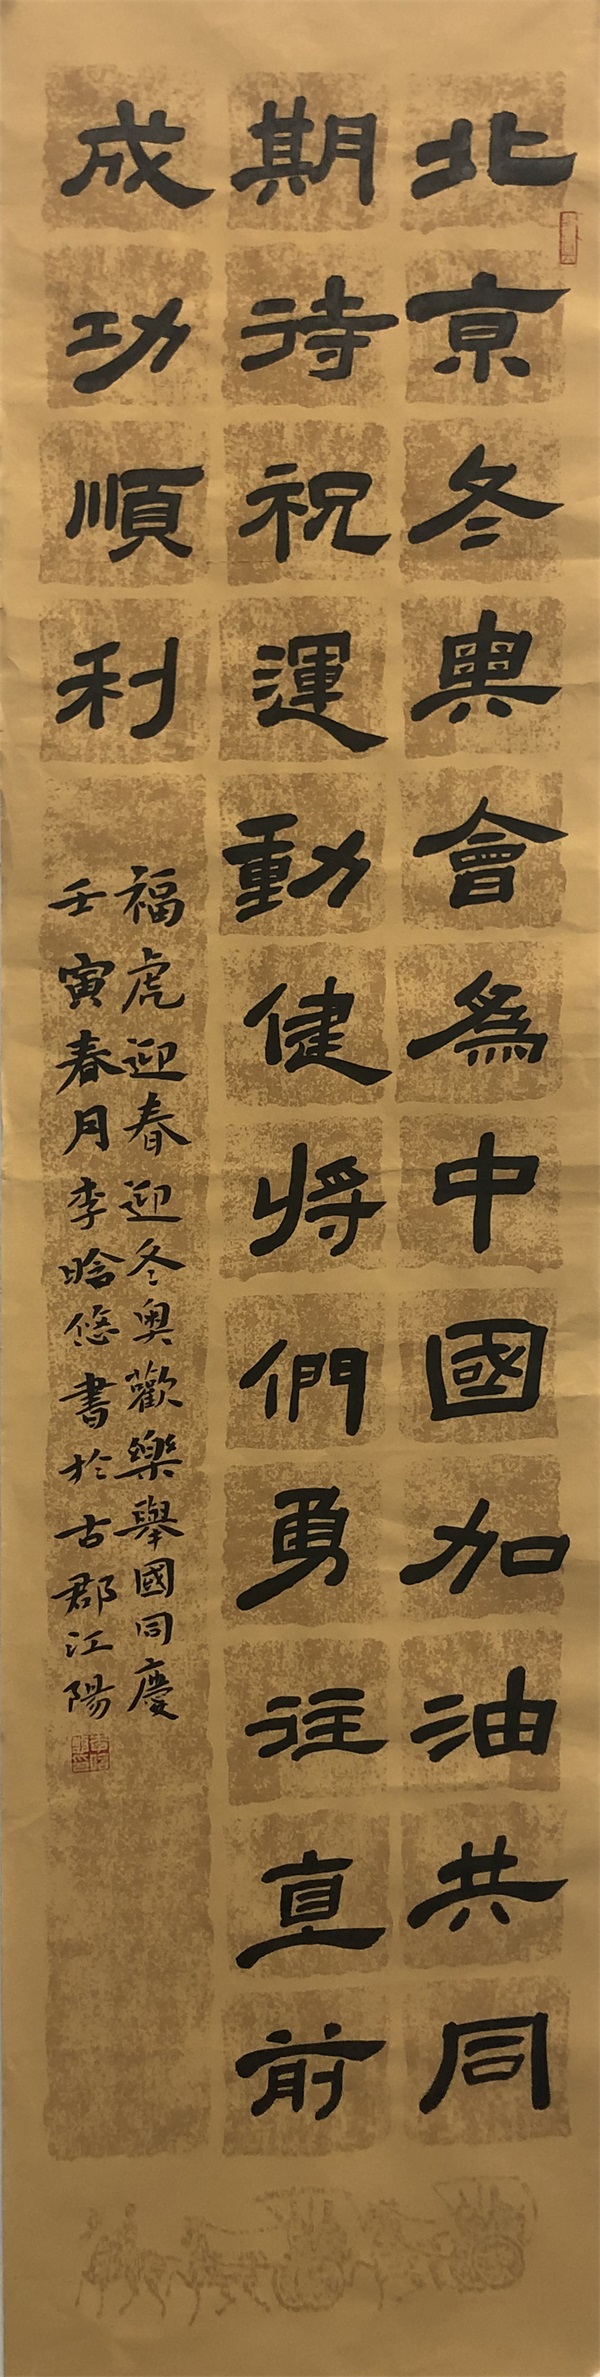 北京冬奥會為中國加油共同
期待祝運動健將們勇往直前
成功順利
福虎迎春迎冬奥歡樂舉國同慶
壬寅春月李晗悠書於古郡江陽